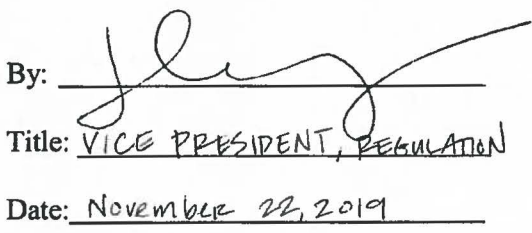 By:
Title: VICE PRESIDENT, REGULATION
Date: November 22, 2019